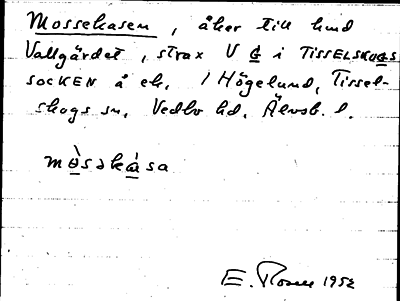 Mossekasen, åker till hmd
Vallgärdet, strax V G i TISSELSKOGS
SOCKEN å ek. 1 Högelund, Tissel-
skogs sn, Vedbo hd, Älvsb. l.
mo̱̊̀səka̱̍sa
E. Rosell 1952